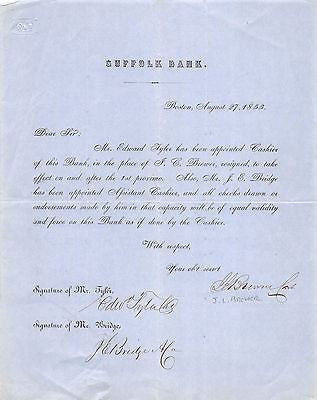 SUFFOLK BANK.
Boston, August 27, 1853.
Dear Sir:
Mr. Edward Tyler has been appointed Cashier
of this Bank, in the place of I. C. Brewer, resigned, to take
effect on and after the 1st proximo. Also, Mr. J. E. Bridge
has been appointed Assistant Cashier, and all checks drawn or
endorsements made by him in that capacity will be of equal validity
and force on this Bank as if done by the Cashier.
With respect,
Your obt servt
Signature of Mr. Tyler,
Edwd Tyler
J. L. BREWER
Signature of Mr. Bridge,
J E Bridge